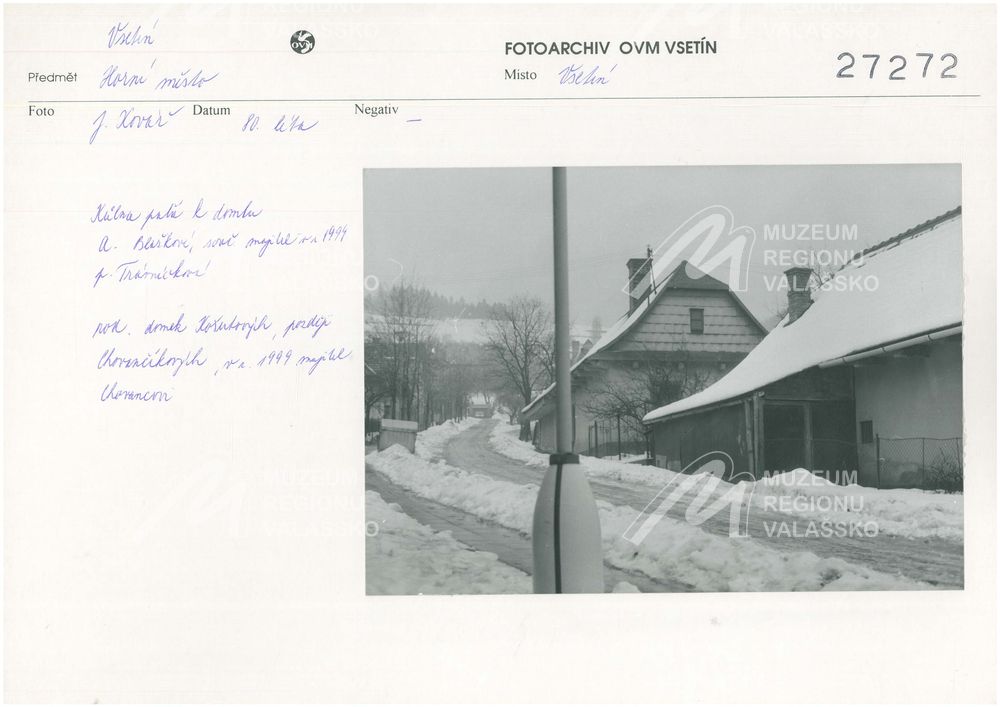 Vsetín
OVM
FOTOARCHIV OVM VSETÍN
27272
Předmět Horní město
Místo Vsetín
Foto J. Kovář Datum 80. léta Negativ –
Kůlna patří k domku
A. Blaškové, souč. majitel v r. 1999
p. Trávníčková
rod. domek Kožutových, později
Chovančíkových, v r. 1999 majitel
Chovancovi
MUZEUM
REGIONU
VALAŠSKO
MUZEUM
REGIONU
VALAŠSKO
MUZEUM
REGIONU
VALAŠSKO
REGIONU
VALAŠSKO
REGIONU
VALAŠSKO